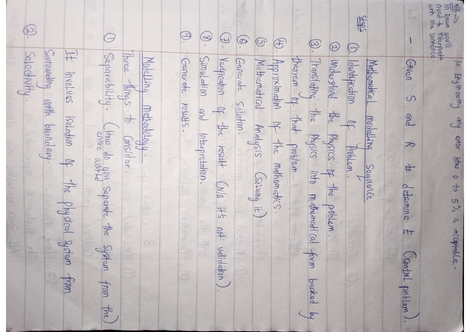 N/B →
In exam you'll
need to interprete
with one sentence.
In Engineering any error btw 0 to 5% is acceptable.
- Given S and R to determine E (Control problem).
Mathematical modelling Sequence
Steps
① Identification of Problem.
② Understand the Physics of the problem.
③ Translating the Physics into mathematical form backed by
theorem of that problem.
④ Approximation of the mathematics.
⑤ Mathematical Analysis (Solving it)
⑥ Generate Solution.
⑦ Verification of the result (N/B it's not validation).
⑧ Simulation and Interpretation.
⑨ Generate results.
Modelling methodology
Three things to Consider.
① Separability. (How do you separate the System from the
entire world)
It involves isolation of the physical system from
Surrounding with boundary.
② Selectivity.